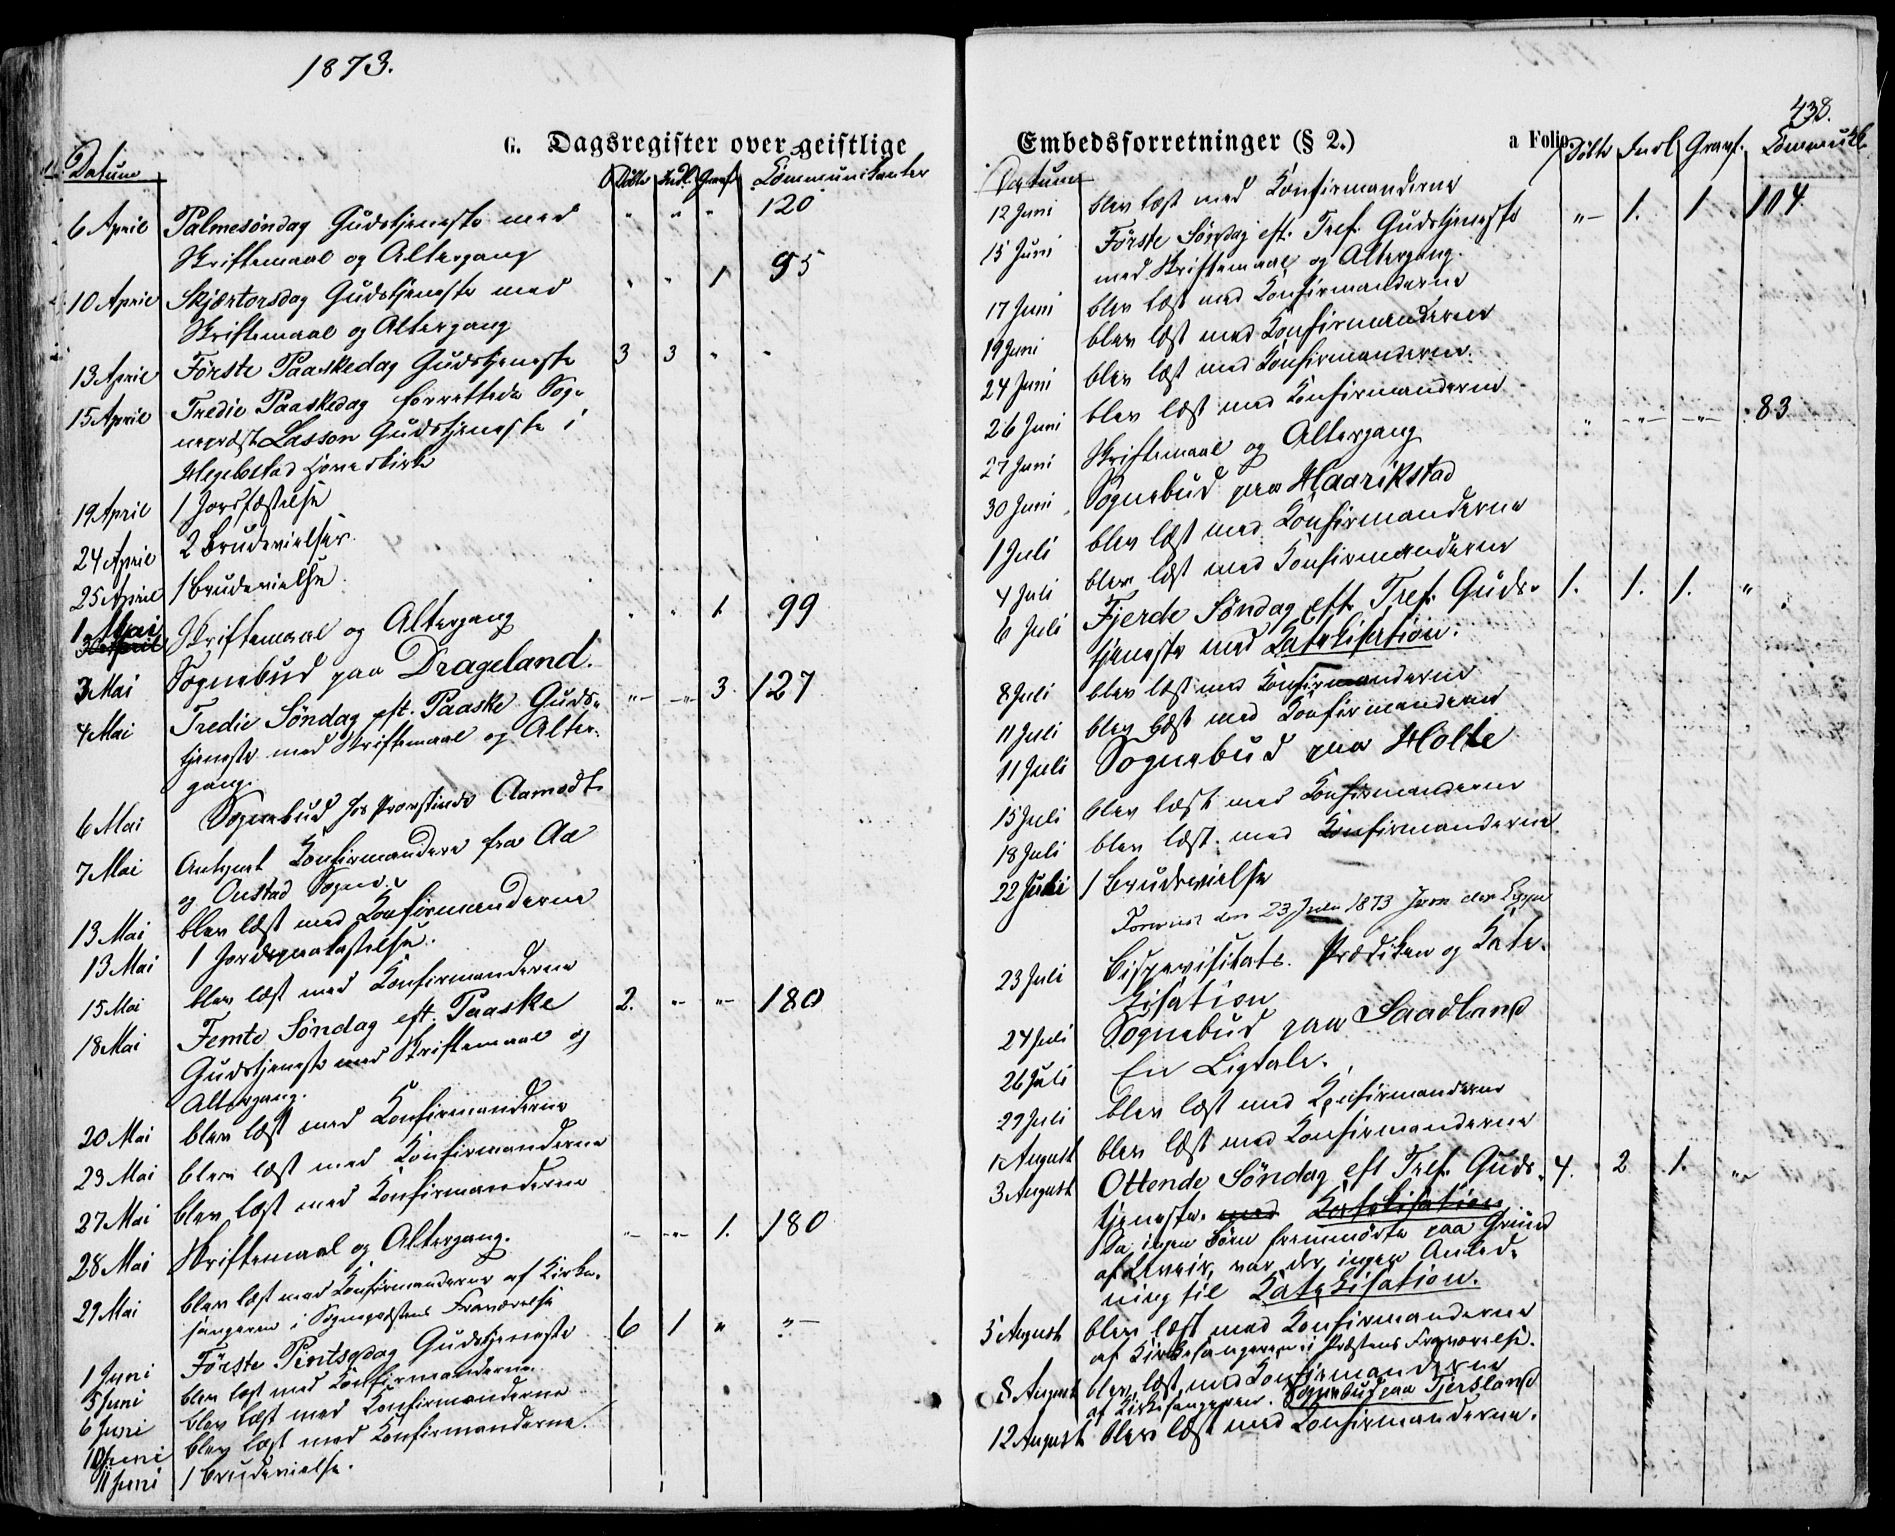 1873.
G. Dagsregister over geistlige
Datum Døbte Indl. Gravf. Communikanter
6 April Palmesøndag Gudstjeneste med " " " 120
Skriftemaal og Altergang
10 April Skjærtorsdag Gudstjeneste med " " 1 95
Skriftemaal og Altergang
13 April Første Paaskedag Gudstjeneste 3 3 " "
15 April Tredie Paaskedag forrettede Sog-
nepræst Lasson Gudstjeneste i
Hegebostad
19 April 1 Jordfæstelse
24 April 2 Brudevielser
25 April 1 Brudevielse
1 Mai Skriftemaal og Altergang " " 1 99
3 Mai Sognebud paa Drageland.
4 Mai Tredie Søndag eft. Paaske Guds- " " 3 127
tjeneste med Skriftemaal og Alter-
gang.
6 Mai Sognebud hos Provstinde Aamodt
7 Mai Antegnet Konfirmandere fra Aa
og Oustad Sogne.
13 Mai blev læst med Konfirmanderne
13 Mai 1 Jordspaakastelse.
15 Mai blev læst med Konfirmanderne
18 Mai Femte Søndag eft. Paaske 2. " " 180
Gudstjeneste med Skriftemaal og
Altergang.
20 Mai blev læst med Konfirmanderne
23 Mai blev læst med Konfirmanderne
27 Mai blev læst med Konfirmanderne
28 Mai Skriftemaal og Altergang. " " 1. 180
29 Mai blev læst med Konfirmanderne af Kirke-
sangeren i Sognepræstens Fraværelse
1 Juni Første Pintsedag Gudstjeneste 6 1 " "
5 Juni blev læst med Konfirmanderne
6 Juni blev læst med Konfirmanderne
10 Juni blev læst med Konfirmanderne.
11 Juni 1 Brudevielse.
438.
Embedsforretninger (§ 2.) a Folio
Datum Døbte Indl Gravf.
12 Juni blev læst med Konfirmanderne
15 Juni Første Søndag eft. Tref. Gudstjeneste " 1. 1 104
med Skriftemaal og Altergang.
17 Juni blev læst med Konfirmanderne
19 Juni blev læst med Konfirmanderne
24 Juni blev læst med Konfirmanderne
26 Juni blev læst med Konfirmanderne
27 Juni Skriftemaal og Altergang " " " 83
30 Juni Sognebud paa Haarikstad
1 Juli blev læst med Konfirmanderne
4 Juli blev læst med Konfirmanderne
6 Juli Fjerde Søndag eft. Tref. Guds- 1. 1. 1. "
tjeneste med Katekisation.
8 Juli blev læst med Konfirmanderne
11 Juli blev læst med Konfirmanderne
11 Juli Sognebud paa Holte
15 Juli blev læst med Konfirmanderne
18 Juli blev læst med Konfirmanderne
22 Juli 1 Brudevielse
den 23 Juli 1873
23 Juli Bispevisitats. Prædiken og Kate-
kisation
24 Juli Sognebud paa Saadland
26 Juli En Ligtale.
29 Juli blev læst med Konfirmanderne
1 August blev læst med Konfirmanderne
3 August Ottende Søndag eft Tref. Guds- 4. 2 1. "
tjeneste. med Katekisation
Da ingen Børn fremmødte paa Grund
af Uveir, var der ingen Anled-
ning til Katekisation.
5 August blev læst med Konfirmanderne
af Kirkesangeren i Præstens Fraværelse.
8 August blev læst med Konfirmanderne
af Kirkesangeren. Sognebud paa Tjersland
12 August blev læst med Konfirmanderne.